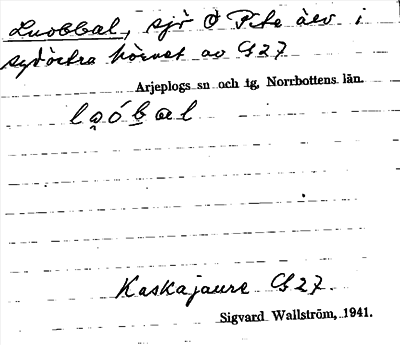 Luobbal, sjö O Pite älv i
sydöstra hörnet av G27
Arjeplogs sn och tg, Norrbottens län.
Kaskajaure G27.
Sigvard Wallström, 1941.